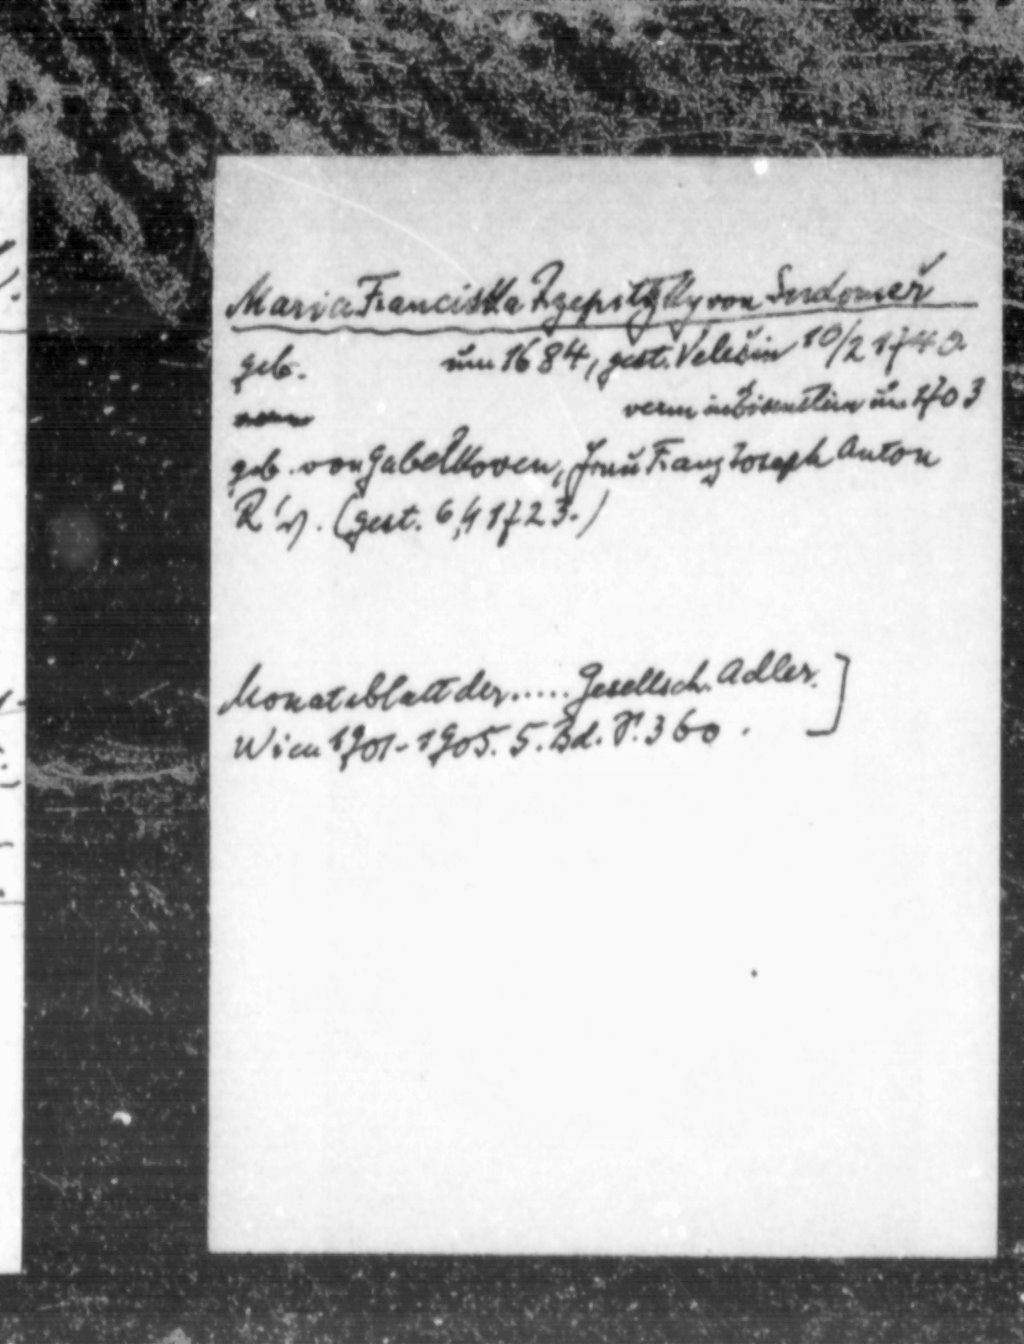 Maria Franciska Rzepitzky von Sudoměř
geb. um 1684, gest. Velešin 10/2 1740.
verm in Eisenstein um 1703
geb. von Gabelkoven, Frau Franz Joseph Anton
R. v. (gest. 6/4 1723.)
Monatsblatt der..... Gesellsch. Adler.
Wien 1901-1905. 5. Bd. S. 360.